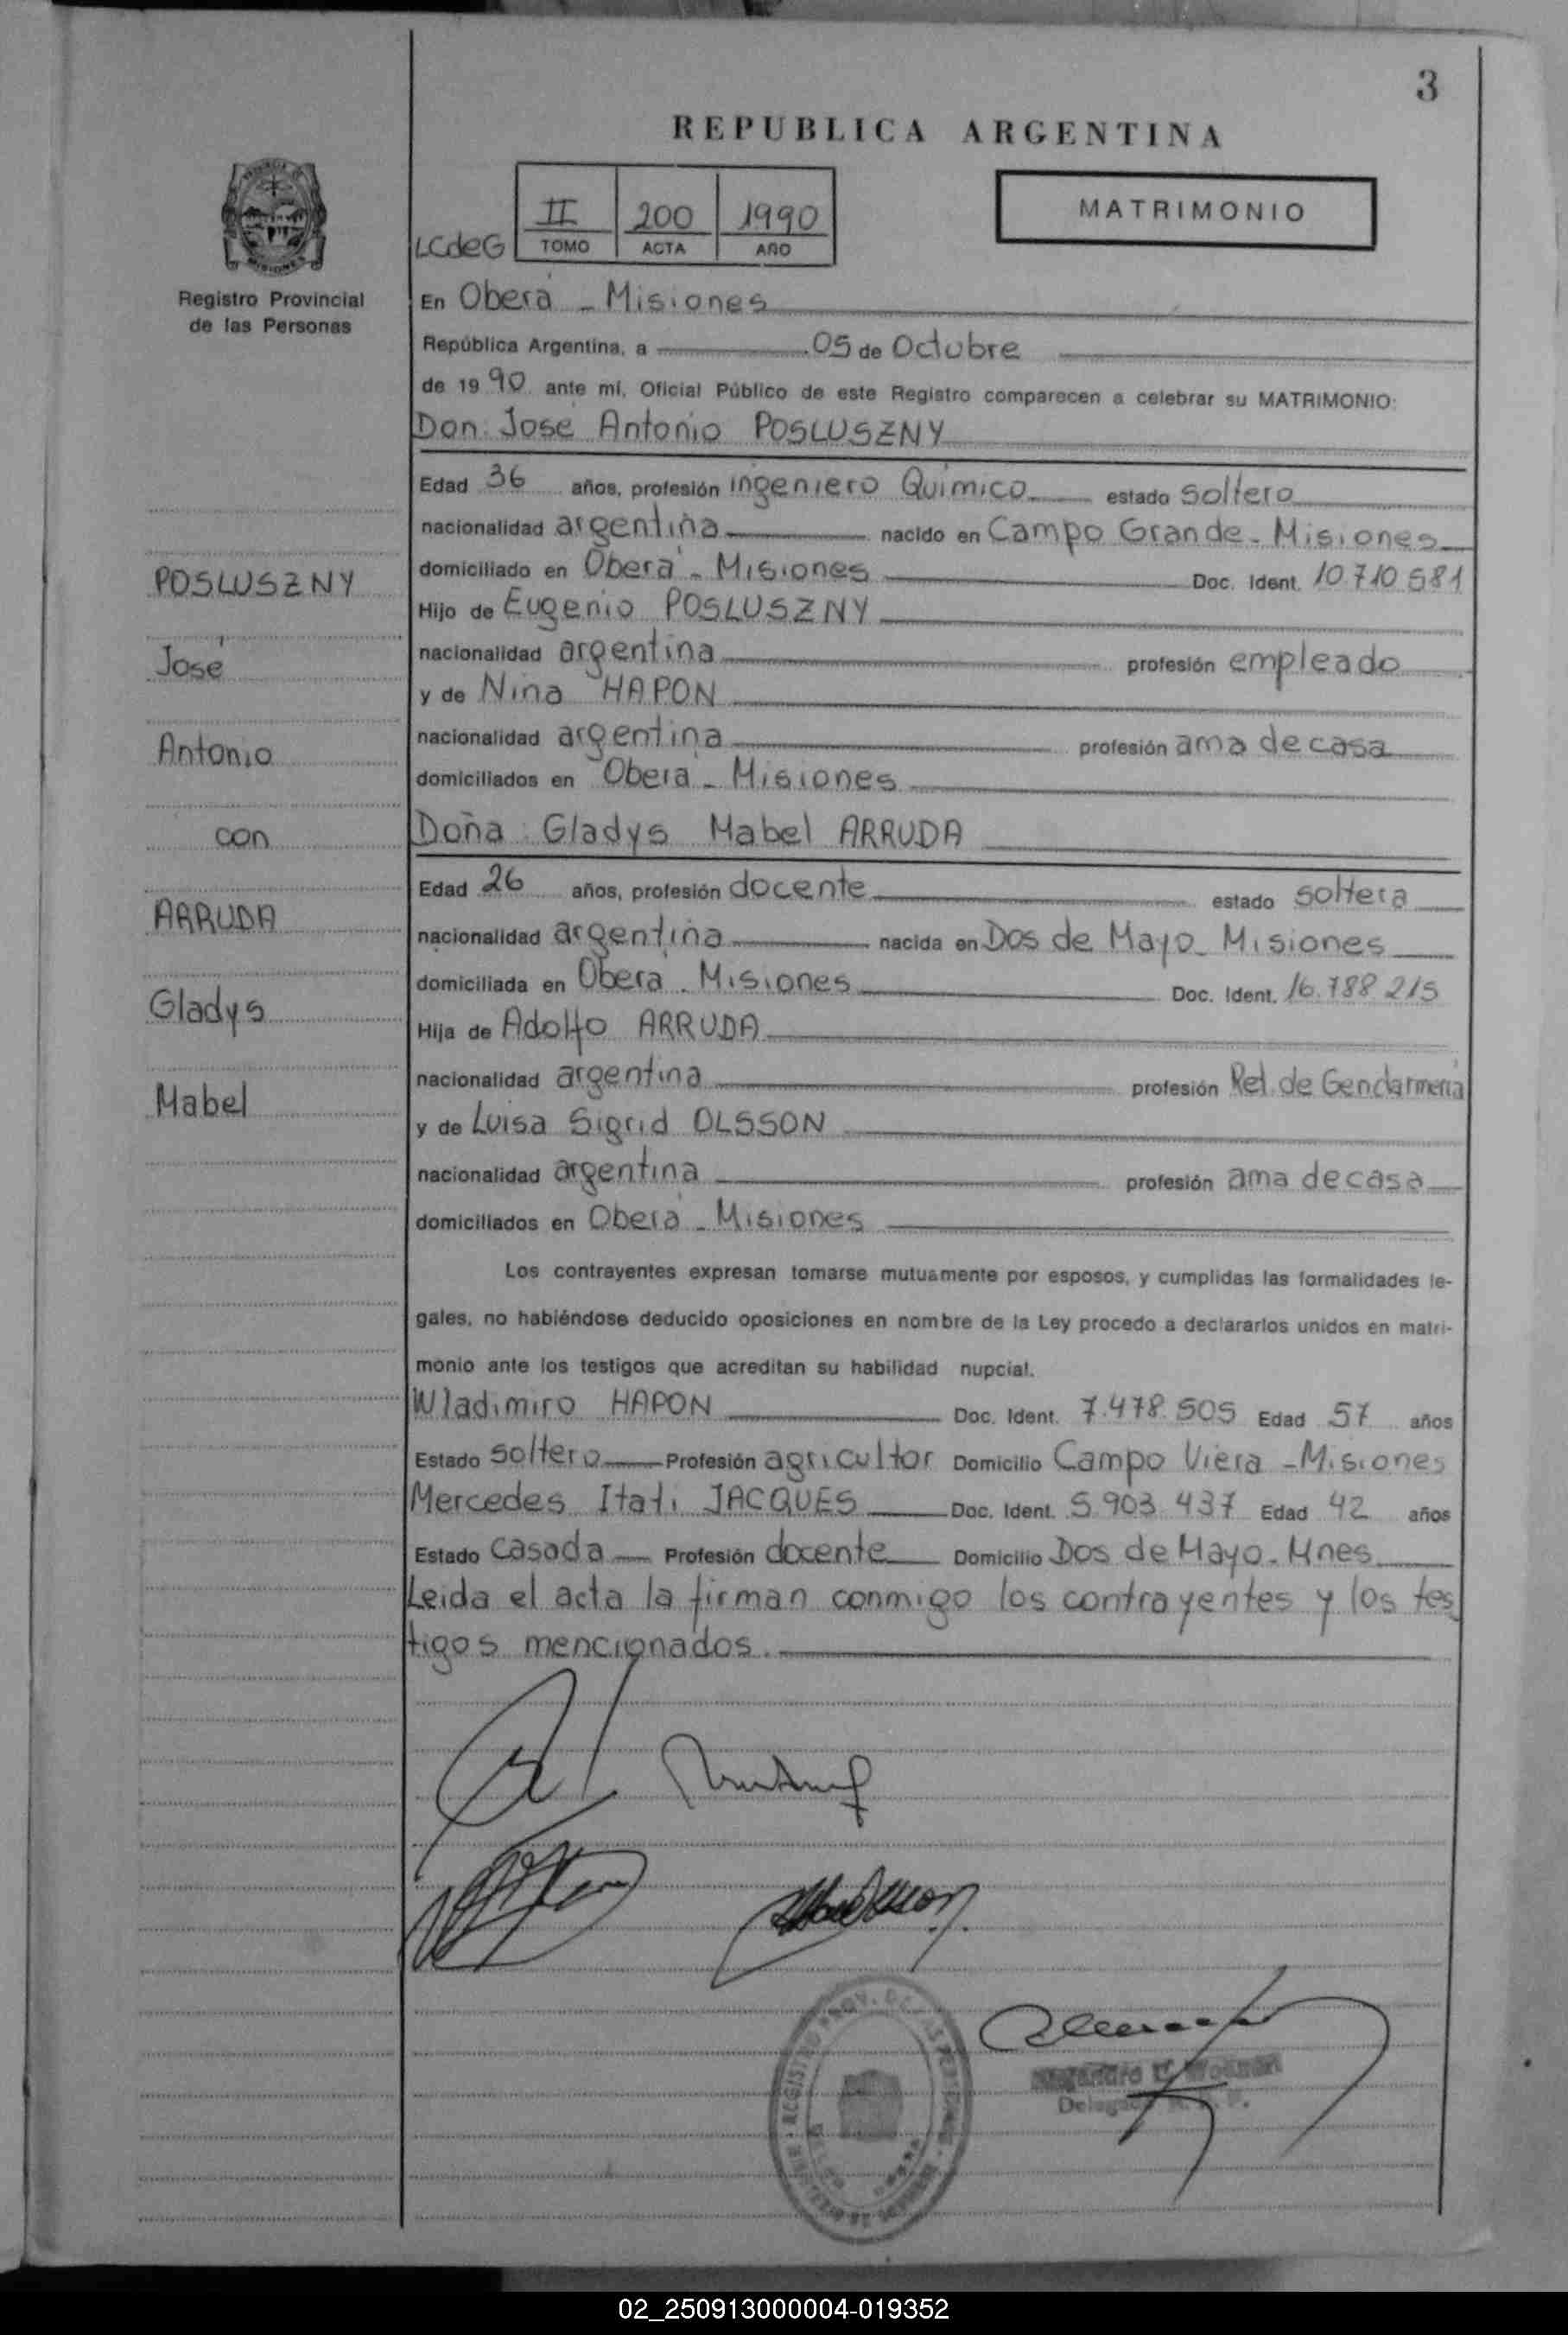 3
REPUBLICA ARGENTINA
MATRIMONIO
II 200 1990
LCdeG TOMO ACTA AÑO
Registro Provincial
de las Personas
En Oberá - Misiones
República Argentina, a 05 de Octubre
de 19 90 ante mí, Oficial Público de este Registro comparecen a celebrar su MATRIMONIO:
Don: José Antonio POSLUSZNY
Edad 36 años, profesión ingeniero Químico estado soltero
nacionalidad argentina nacido en Campo Grande - Misiones
domiciliado en Oberá - Misiones Doc. Ident. 10.710.581
Hijo de Eugenio POSLUSZNY
nacionalidad argentina profesión empleado
y de Nina HAPON
nacionalidad argentina profesión ama de casa
domiciliados en Oberá - Misiones
POSLUSZNY
José
Antonio
con
ARRUDA
Gladys
Mabel
Doña: Gladys Mabel ARRUDA
Edad 26 años, profesión docente estado soltera
nacionalidad argentina nacida en Dos de Mayo - Misiones
domiciliada en Oberá - Misiones Doc. Ident. 16.788.215
Hija de Adolfo ARRUDA
nacionalidad argentina profesión Ret. de Gendarmería
y de Luisa Sigrid OLSSON
nacionalidad argentina profesión ama de casa
domiciliados en Oberá - Misiones
Los contrayentes expresan tomarse mutuamente por esposos, y cumplidas las formalidades le-
gales, no habiéndose deducido oposiciones en nombre de la Ley procedo a declararlos unidos en matri-
monio ante los testigos que acreditan su habilidad nupcial.
Wladimiro HAPON Doc. Ident. 7.478.505 Edad 57 años
Estado soltero Profesión agricultor Domicilio Campo Viera - Misiones
Mercedes Itatí JACQUES Doc. Ident. 5.903.437 Edad 42 años
Estado casada Profesión docente Domicilio Dos de Mayo - Mnes
Leida el acta la firman conmigo los contrayentes y los tes
tigos mencionados.
Delegado
02_250913000004-019352